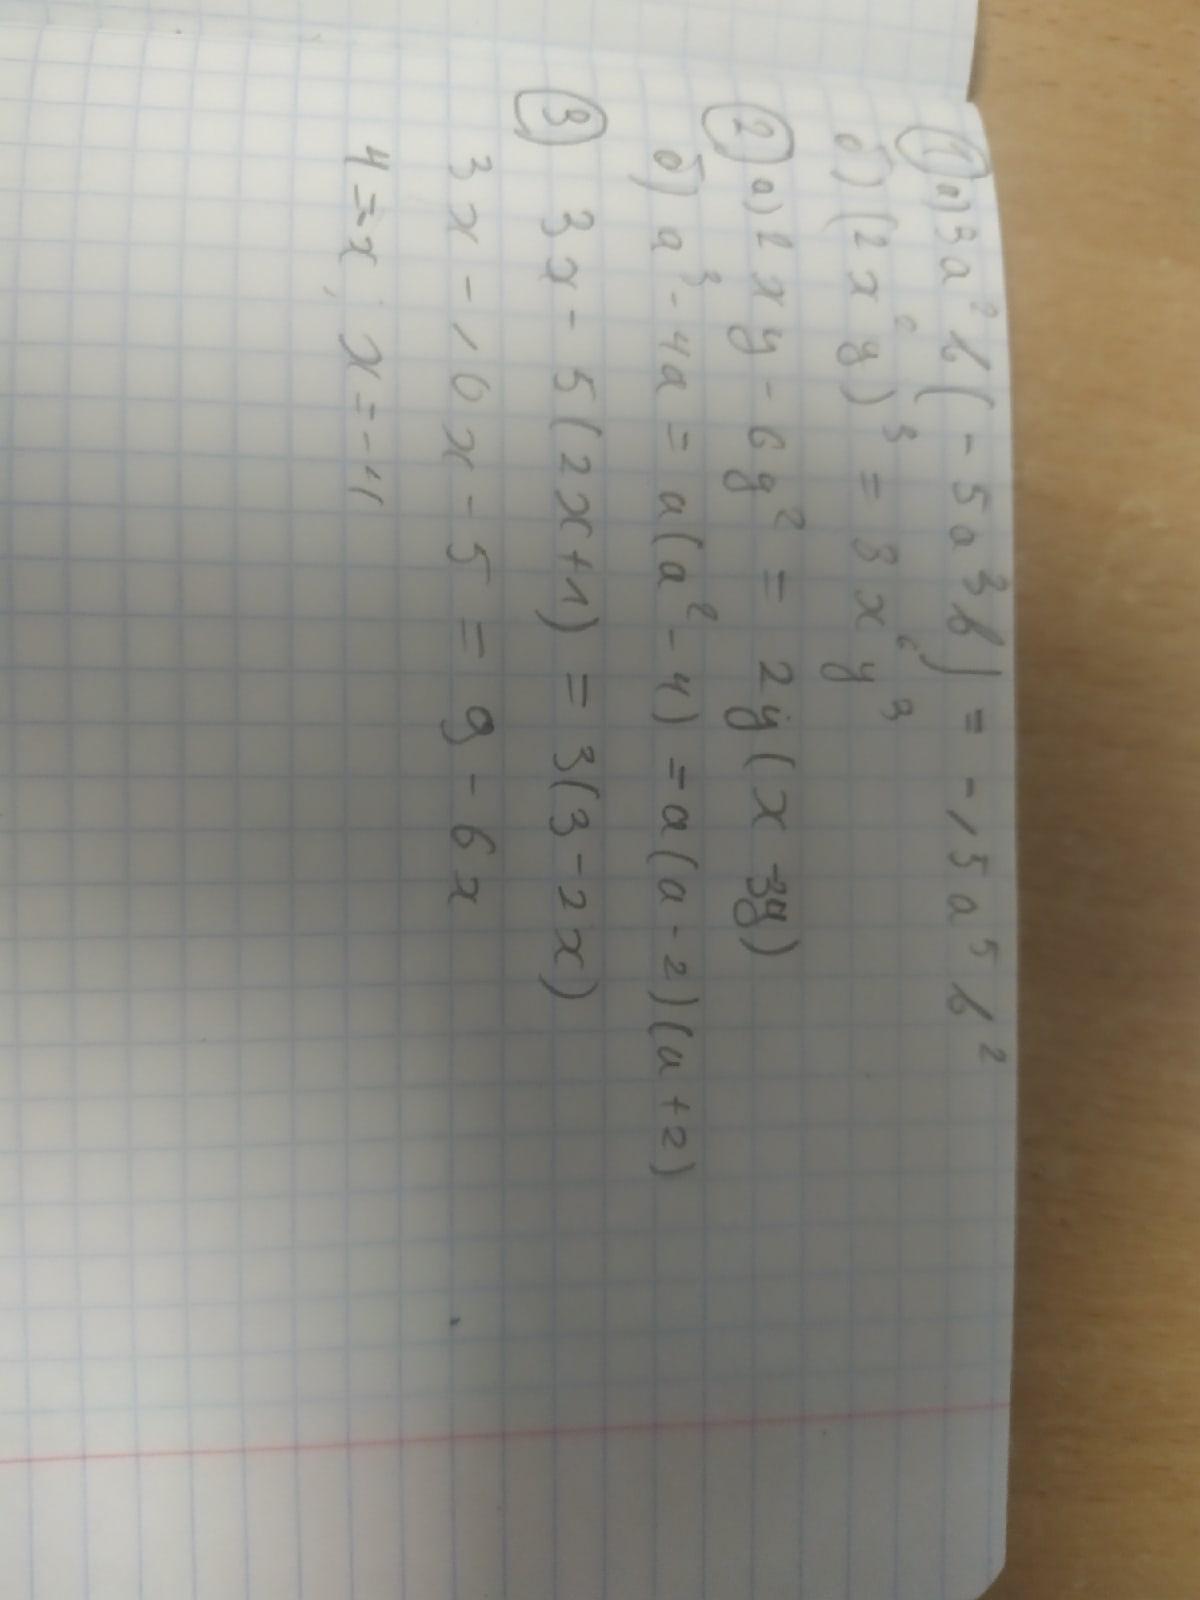 ① а) 3a²b(-5a³b) = -15a⁵b²
б) (2x²y)³ = 8x⁶y³
② а) 2xy - 6y² = 2y(x-3y)
б) a³-4a = a(a²-4) = a(a-2)(a+2)
③ 3x - 5(2x+1) = 3(3-2x)
3x - 10x - 5 = 9 - 6x
4 = x; x = -11